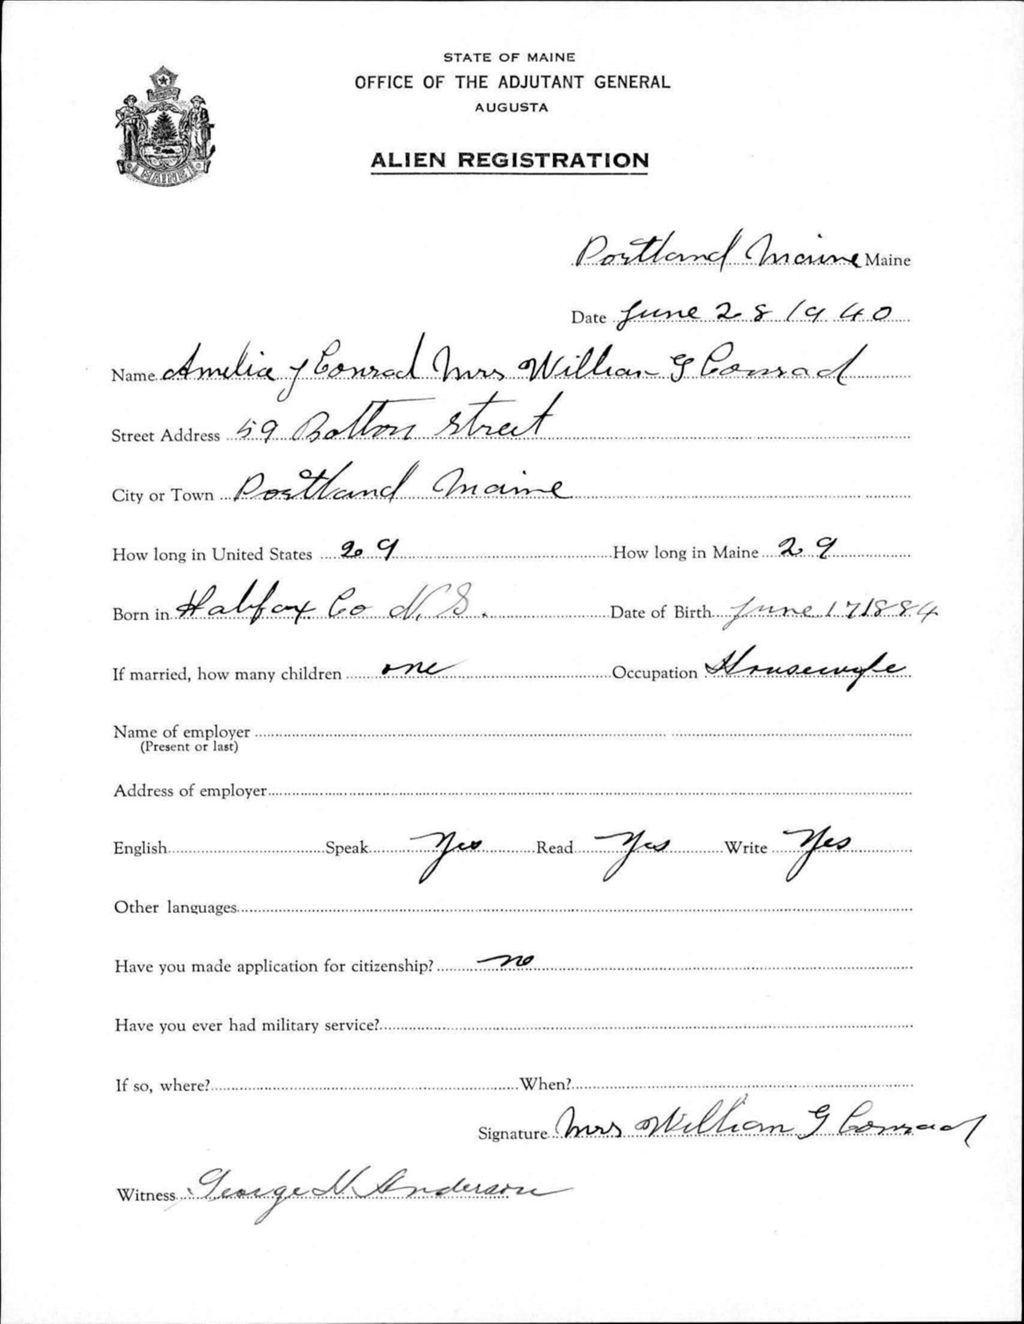 STATE OF MAINE
OFFICE OF THE ADJUTANT GENERAL
AUGUSTA
ALIEN REGISTRATION
MAINE
Portland Maine Maine
Date June 28 1940
Name Amelia J Conrad Mrs William G Conrad
Street Address 59 Bolton Street
City or Town Portland Maine
How long in United States 29 How long in Maine 29
Born in Halifax Co N.S. Date of Birth June 17 1884
If married, how many children one Occupation Housewife
Name of employer
(Present or last)
Address of employer
English Speak Yes Read Yes Write Yes
Other languages
Have you made application for citizenship? no
Have you ever had military service?
If so, where? When?
Signature Mrs William G Conrad
Witness George N. Anderson